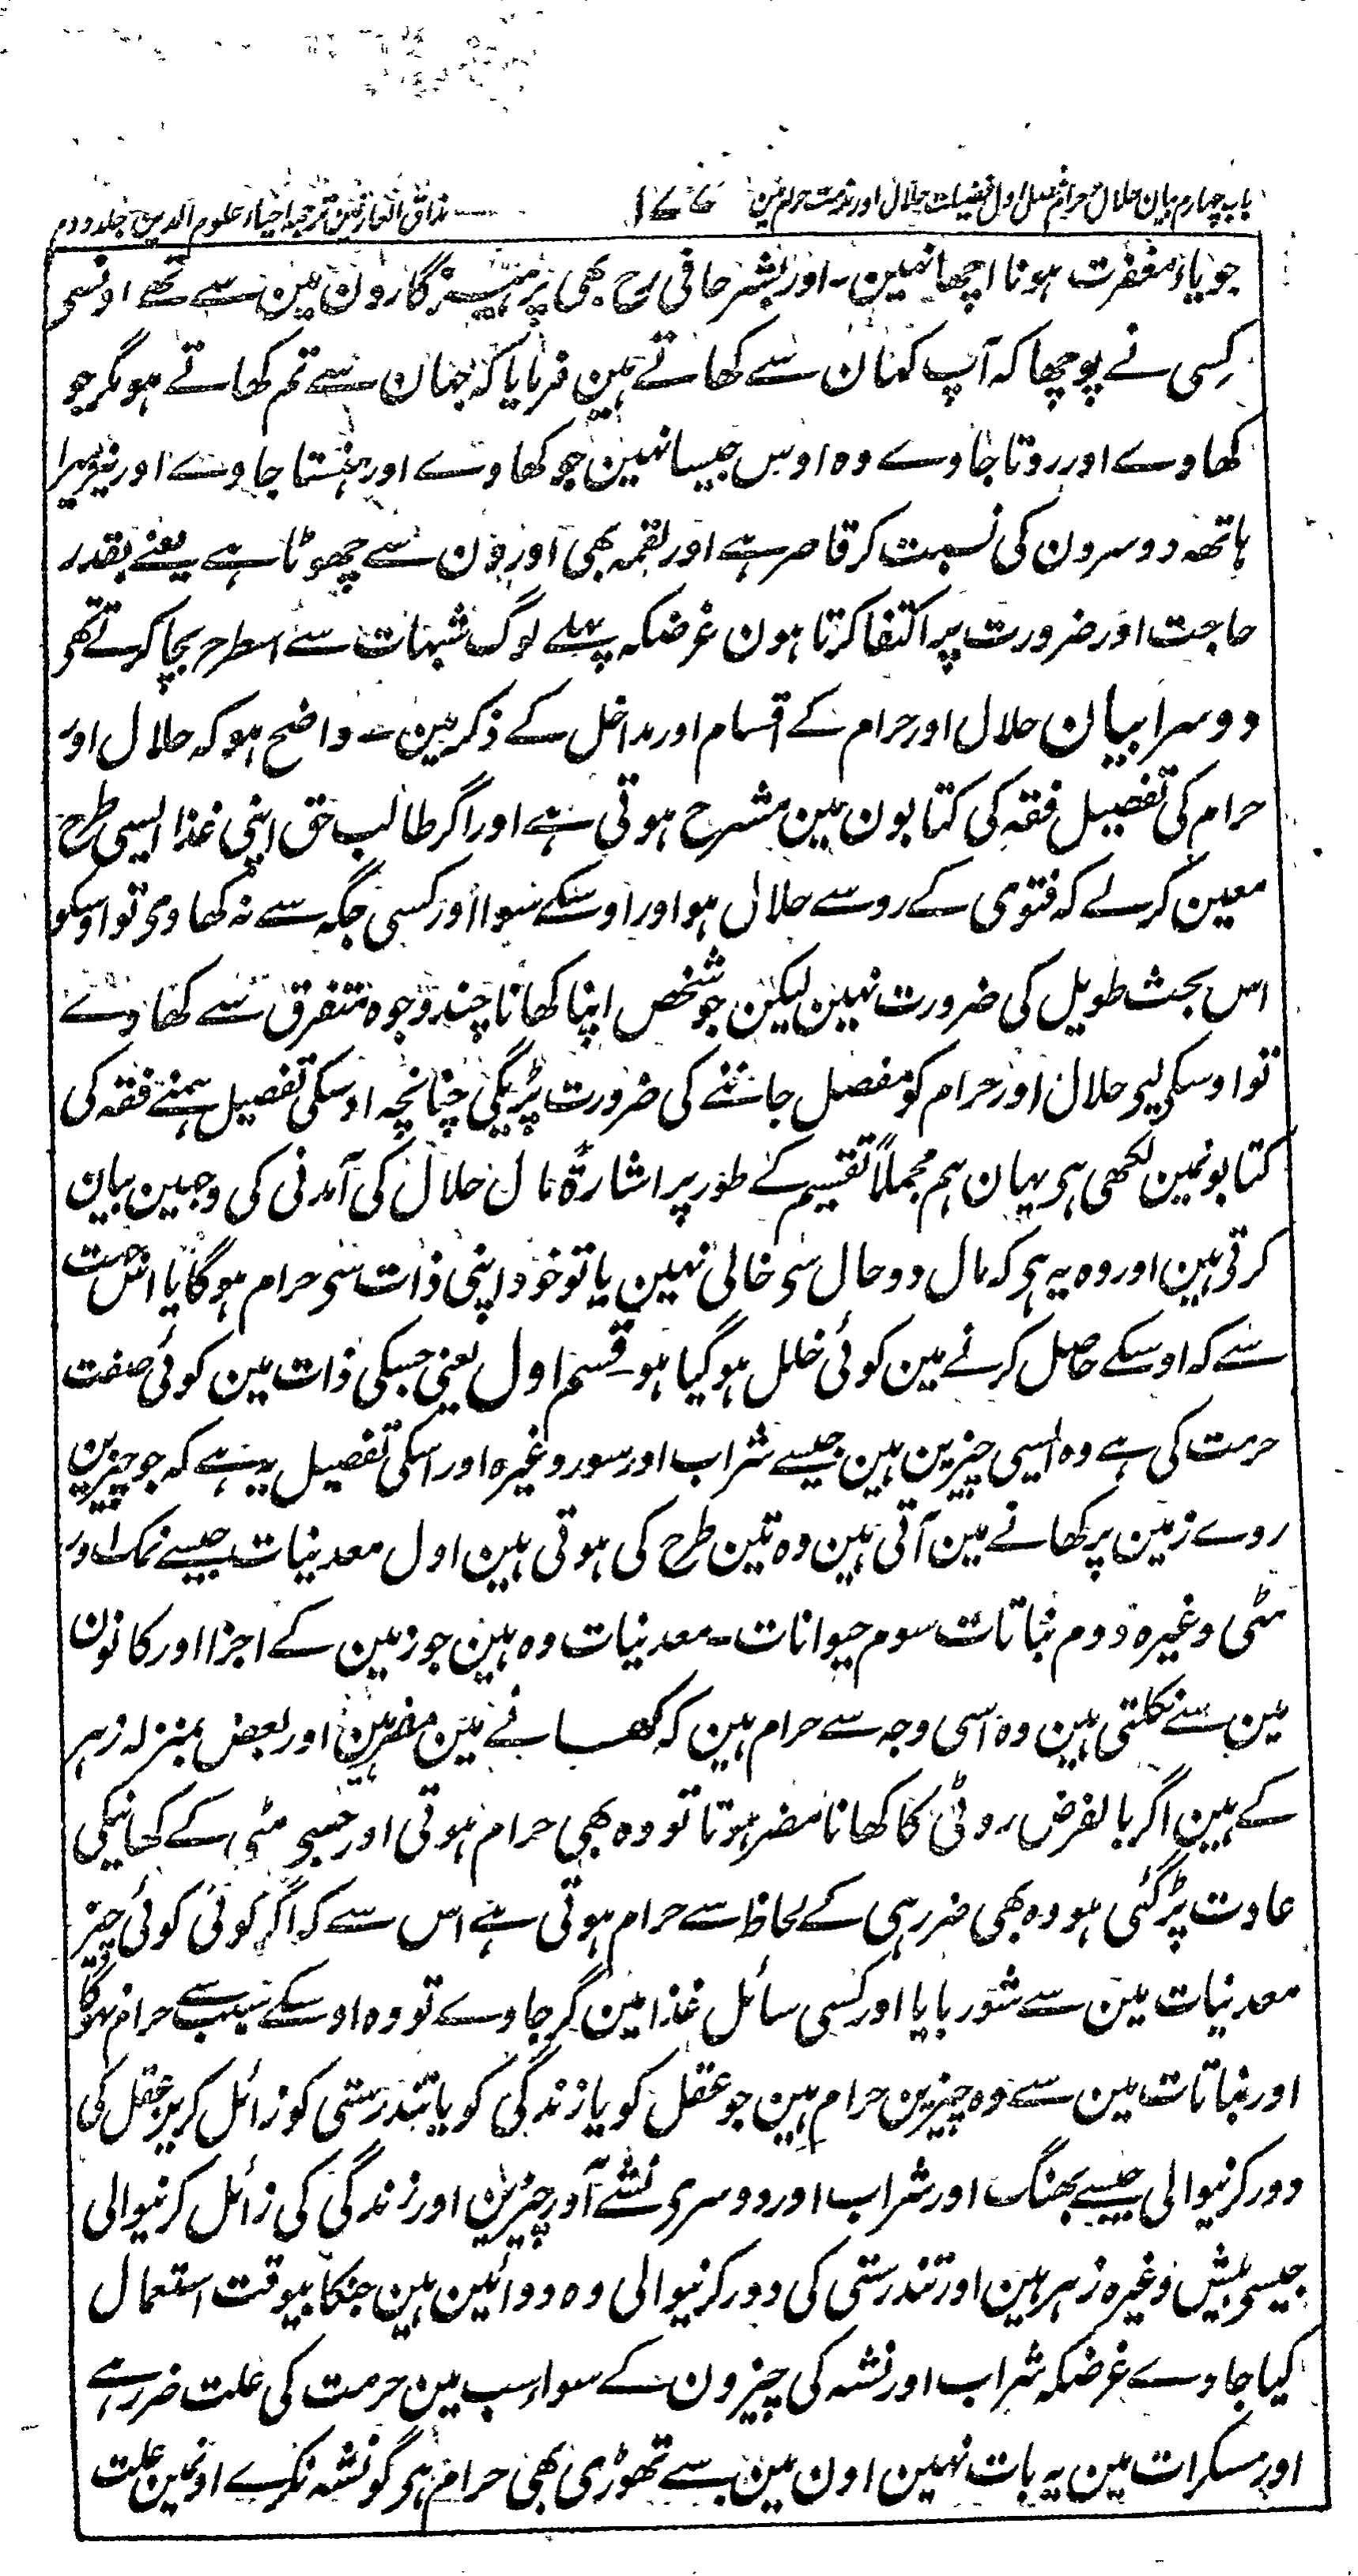 باب چہارم بیان حلال و حرام فصل اول فضیلت حلال اور مذمت حرام مین ۱۷۷ مذاق العارفین ترجمہ احیاء علوم الدین جلد دوم
جو یاد مغفرت ہونا اچھا نہین۔ اور بشر حافی رح بھی پرہیزگارون مین سے تھے اونسی
کسی نے پوچھا کہ آپ کہان سے کھاتے ہین فرمایا کہ جہان سے تم کھاتے ہو مگر جو
کھاوے اور روتا جاوے وہ اوس جیسا نہین جو کھاوے اور ہنستا جاوے اور نیز میرا
ہاتھہ دوسرون کی نسبت کر قاصر ہے اور لقمہ بھی اورون سے چھوٹا ہے یعنے بقدر
حاجت اور ضرورت پر اکتفا کرتا ہون غرضکہ پہلے لوگ شبہات سے اسطرح بچا کرتے تھی
دوسرا بیان حلال اور حرام کے اقسام اور مداخل کے ذکر مین ۔ واضح ہو کہ حلال اور
حرام کی تفصیل فقہ کی کتابون مین مشرح ہوتی ہے اور اگر طالب حق اپنی غذا ایسی طرح
معین کرلے کہ فتوی کے رو سے حلال ہو اور اوسکے سوا اور کسی جگہ سے نہ کھاوی تو اوسکو
اس بحث طویل کی ضرورت نہین لیکن جو شخص اپنا کھانا چند وجوہ متفرق سے کھاوے
تو اوسکی لیی حلال اور حرام کو مفصل جاننے کی ضرورت پڑیگی چنانچہ اوسکی تفصیل ہمنے فقہ کی
کتابونمین لکھی ہی یہان ہم مجملاً تقسیم کے طور پر اشارۃً مال حلال کی آمدنی کی وجہین بیان
کرتی ہین اور وہ یہ ہی کہ مال دو حال سی خالی نہین یا تو خود اپنی ذات سی حرام ہوگا یا اس جہت
سے کہ اوسکے حاصل کرنے مین کوئی خلل ہوگیا ہو۔ قسم اول یعنی جسکی ذات مین کوئی صفت
حرمت کی ہے وہ ایسی چیزین ہین جیسے شراب اور سور وغیرہ اور اسکی تفصیل یہ ہے کہ جو چیزین
روے زمین پر کھانے مین آتی ہین وہ تین طرح کی ہوتی ہین اول معدنیات جیسے نمک اور
مٹی وغیرہ دوم نباتات سوم حیوانات۔ معدنیات وہ ہین جو زمین کے اجزا اور کانون
مین سے نکلتی ہین وہ اسی وجہ سے حرام ہین کہ کھانے مین مضر ہین اور بعض بمنزلہ زہر
کے ہین اگر بالفرض روٹی کا کھانا مضر ہوتا تو وہ بھی حرام ہوتی اور جسی مٹی کے کھانیکی
عادت پڑ گئی ہو وہ بھی ضرر ہی کے لحاظ سے حرام ہوتی ہے اس سے کہ اگر کوئی کوئی چیز
معدنیات مین سے شوربا یا اور کسی سائل غذا مین گر جاوے تو وہ اوسکے سبب سے حرام نہوگا
اور نباتات مین سے وہ چیزین حرام ہین جو عقل کو یا زندگی کو یا تندرستی کو زائل کرین عقل کی
دور کرنیوالی جیسے بھنگ اور شراب اور دوسری نشے آور چیزین اور زندگی کی زائل کرنیوالی
جیسی بیش وغیرہ زہر ہین اور تندرستی کی دور کرنیوالی وہ دوائین ہین جنکا بیوقت استعمال
کیا جاوے غرضکہ شراب اور نشہ کی چیزون کے سواء سب مین حرمت کی علت ضرر ہے
اور مسکرات مین یہ بات نہین اون مین سے تھوڑی بھی حرام ہی گو نشہ نکرے اونمین علت